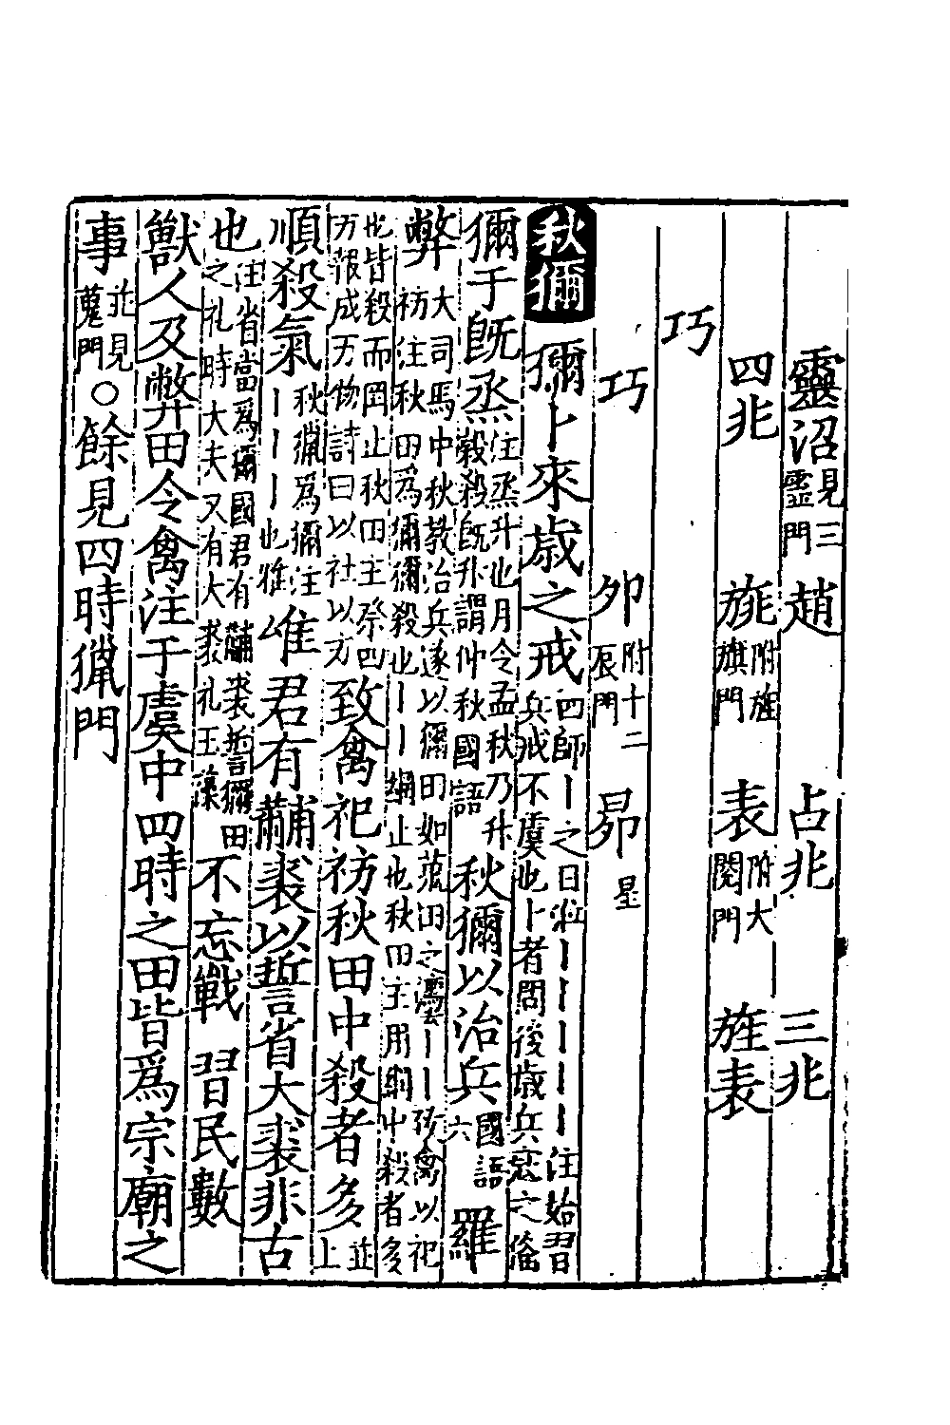 靈沼見三靈門 趙 占兆 三兆
四兆 旐附旌旗門 表附大閱門 旌表
巧
巧 卯附十二辰門 昴星
秋獮 獮卜來歲之戒四師丨之日涖丨丨丨丨丨注始習兵戒不虞也卜者問後歲兵寇之備
獮于既烝注烝升也月令孟秋乃升穀殺既升謂仲秋國語 秋獮以治兵國語六 羅
弊大司馬中秋教治兵遂以獮田如蒐田之灋丨丨致禽以祀祊注秋田為獮獮殺也丨丨網止也秋田主用罔中殺者多
也皆殺而罔止秋田主祭四方報成万物詩曰以社以方 致禽祀祊秋田中殺者多並上
順殺氣秋獵為獮注丨丨丨也雅 唯君有黼裘以誓省大裘非古
也注省當為獮國君有黼裘誓獮田之礼時大夫又有大裘礼玉藻 不忘戰 習民數
獸人及弊田令禽注于虞中四時之田皆為宗廟之
事並見蒐門○餘見四時獵門